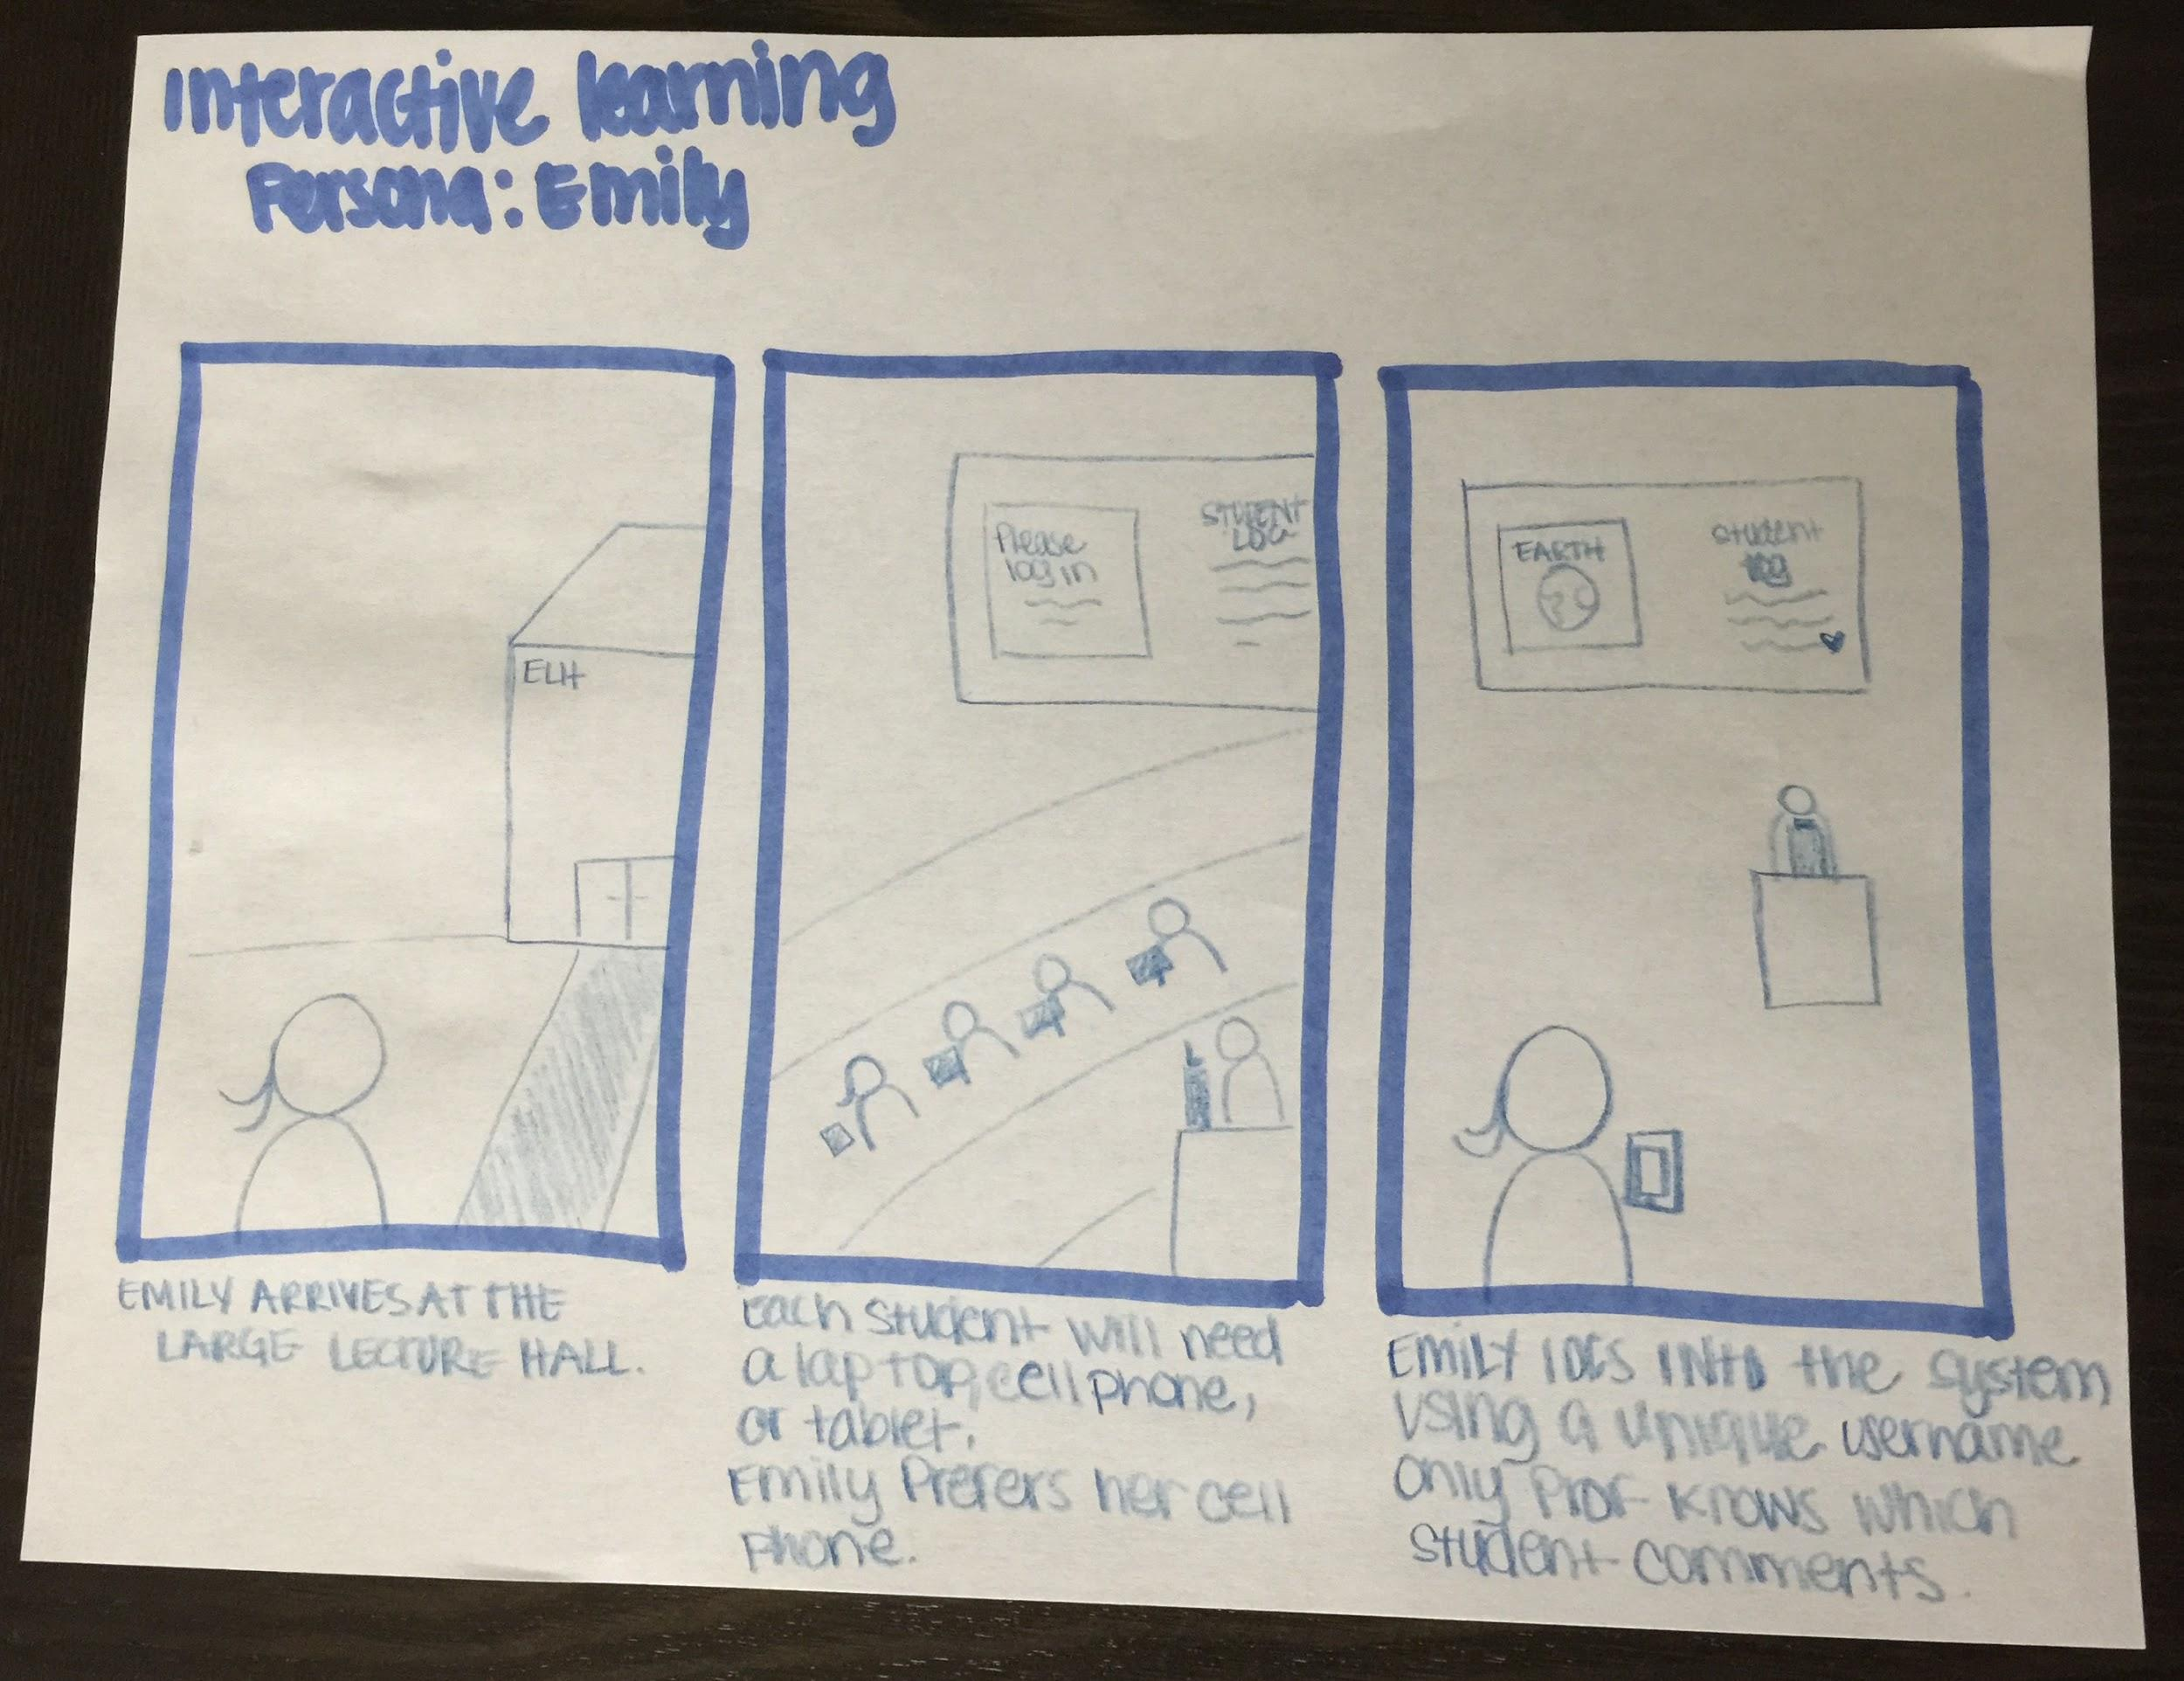 Interactive learning
Persona: Emily
ELH
EMILY ARRIVES AT THE
LARGE LECTURE HALL.
Please
log in
STUDENT
LOG
Each student will need
a laptop, cell phone,
or tablet.
Emily Prefers her cell
phone.
EARTH
Student
log
EMILY lOGS INTO the system
using a unique username
only Prof knows which
student comments.